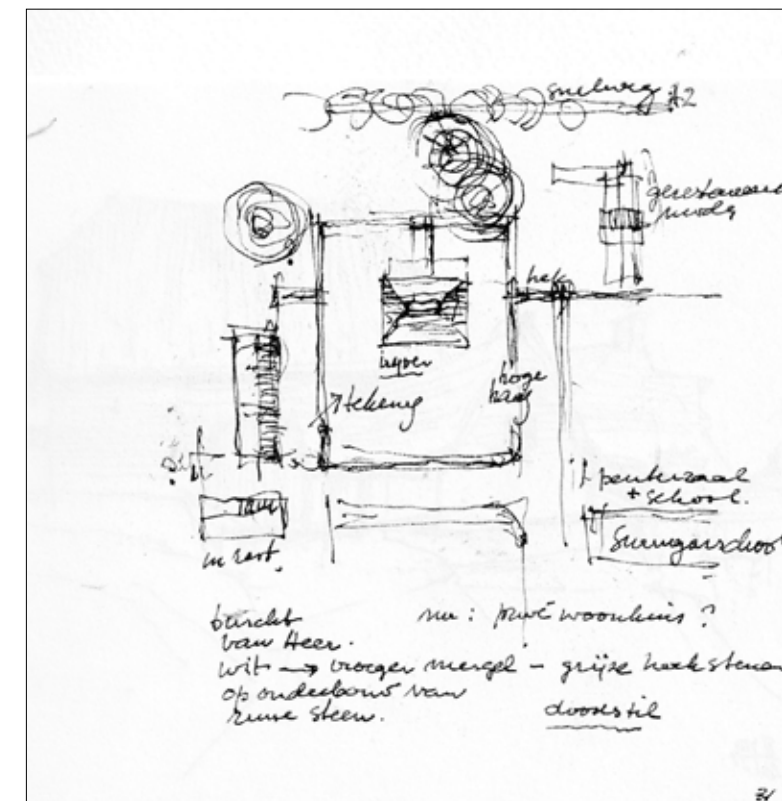 snelweg A2
gerestaureerd
hek
vijver
hoge
haag
tekening
peuterzaal
+ school.
burcht
van Heer.
nu: privé woonhuis?
wit → vroeger mergel – grijze hoekstenen
op onderbouw van
ruwe steen.
doodstil